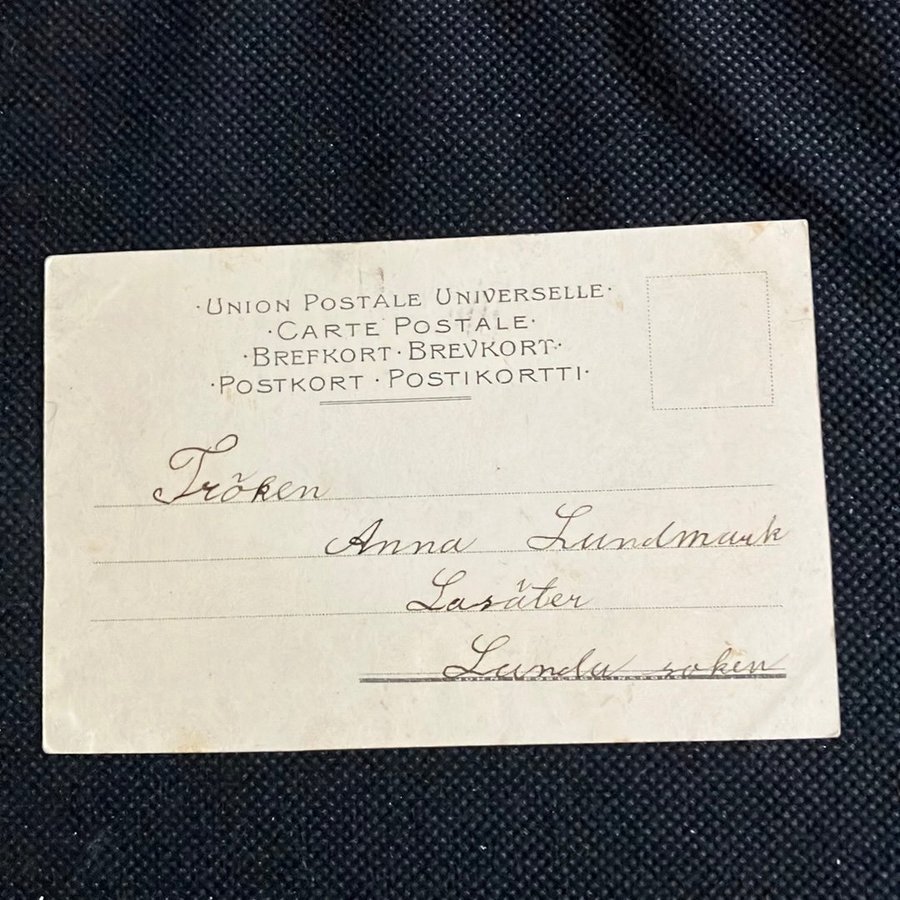 ·UNION POSTALE UNIVERSELLE·
·CARTE POSTALE·
·BREFKORT·BREVKORT·
·POSTKORT·POSTIKORTTI·
Fröken
Anna Lundmark
Lasäter
Lunda soken